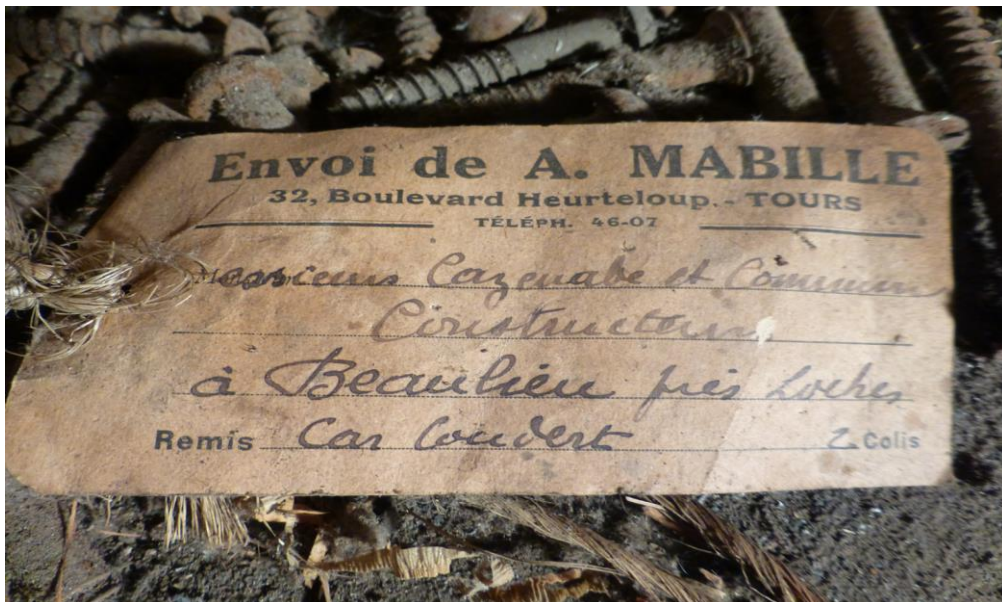 Envoi de A. MABILLE
32, Boulevard Heurteloup. - TOURS
TÉLÉPH. 46-07
Messieurs Cazenabe et
Constructeurs
à Beaulieu près Loches
Remis Car Coudert 2 Colis